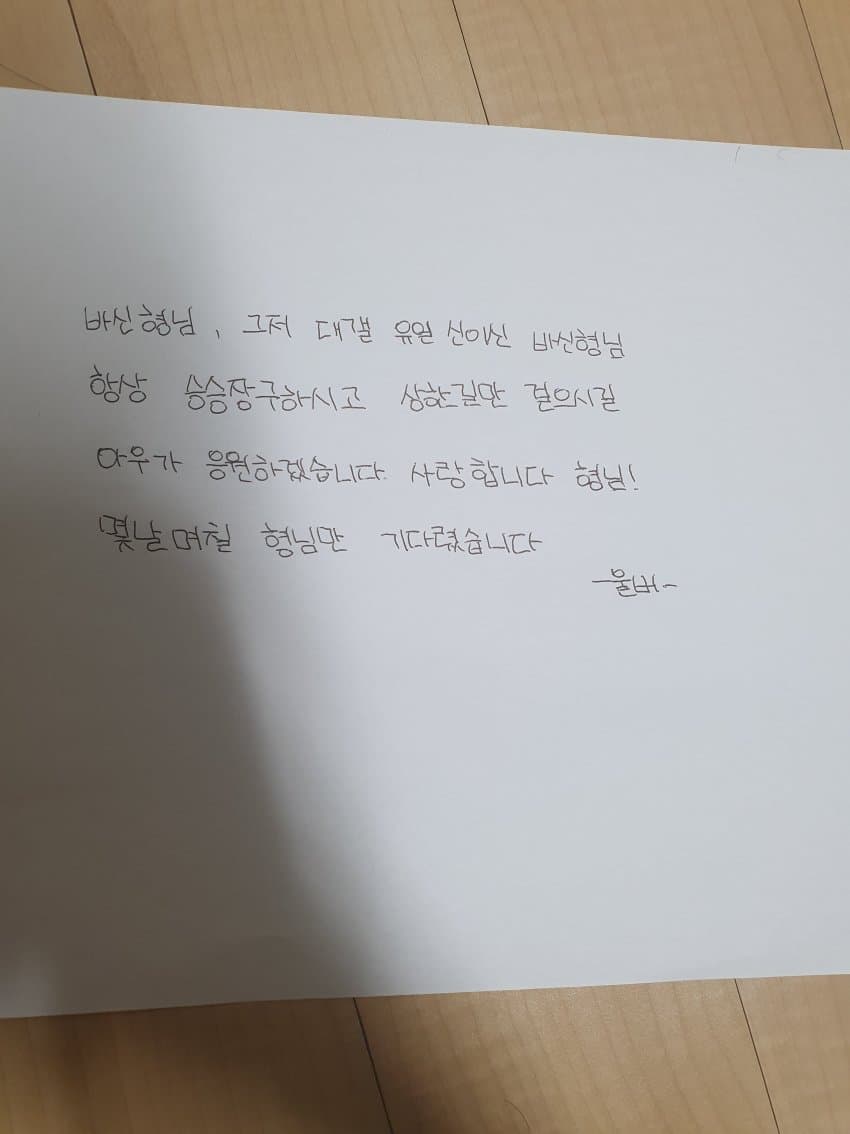 바신형님, 그저 대갤 유일신이신 바신형님
항상 승승장구하시고 상한길만 걸으시길
아우가 응원하겠습니다. 사랑합니다 형님!
몇날며칠 형님만 기다렸습니다
-울버-